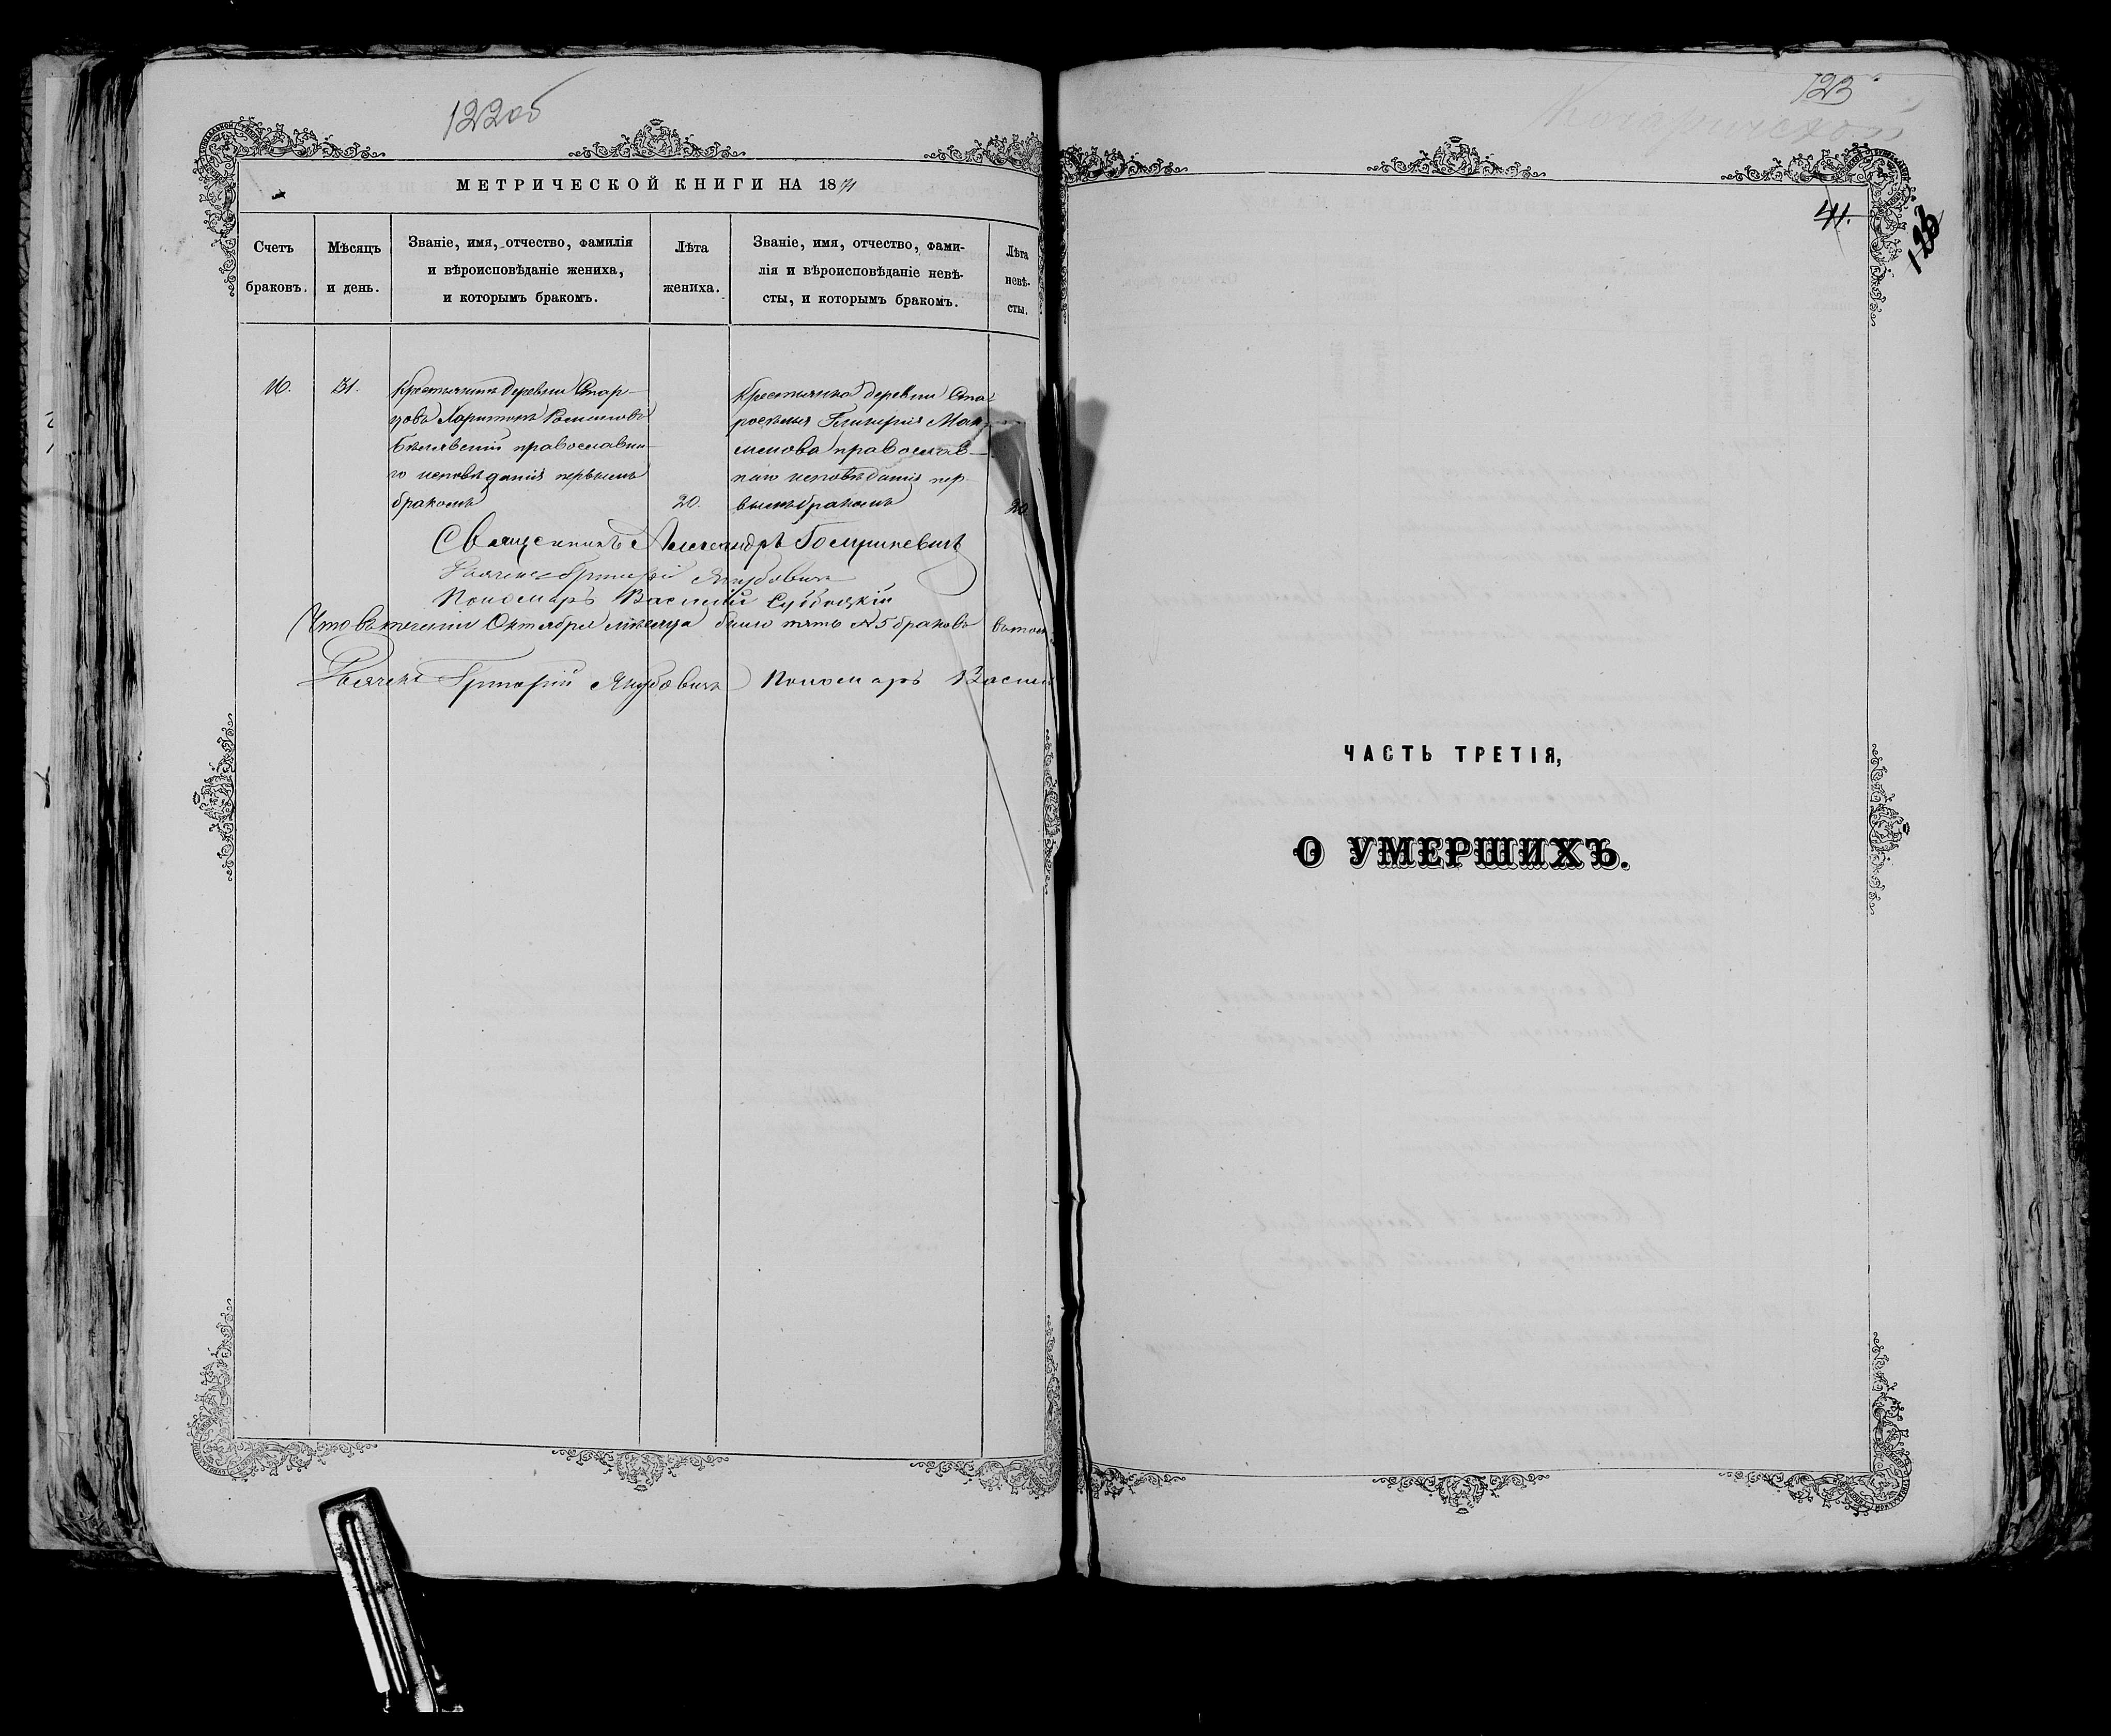 122об
МЕТРИЧЕСКОЙ КНИГИ НА 1871
Счетъ браковъ.
Мѣсяцъ и день.
Званіе, имя, отчество, фамилія
и вѣроисповѣданіе жениха,
и которымъ бракомъ.
Лѣта жениха.
Званіе, имя, отчество, фами-
лія и вѣроисповѣданіе невѣ-
сты, и которымъ бракомъ.
Лѣта
невѣ-
сты.
16.
31.
Крестьянинъ деревни Стар-
цовъ Харитонъ
православна-
го исповѣданія первымъ
бракомъ
20.
Крестьянка деревни Ста
роселья Гликерія Мак
симова православ-
наго исповѣданія пер-
вымъ бракомъ
20
Священникъ Александръ
Григорій Якубовичъ
Пономарь Василій Субоцкій
Что въ теченіи Октября мѣсяца было пять № 5 браковъ въ том
Григорій Якубовичъ Пономарь Васил
123
41.
123
ЧАСТЬ ТРЕТІЯ,
О УМЕРШИХЪ.